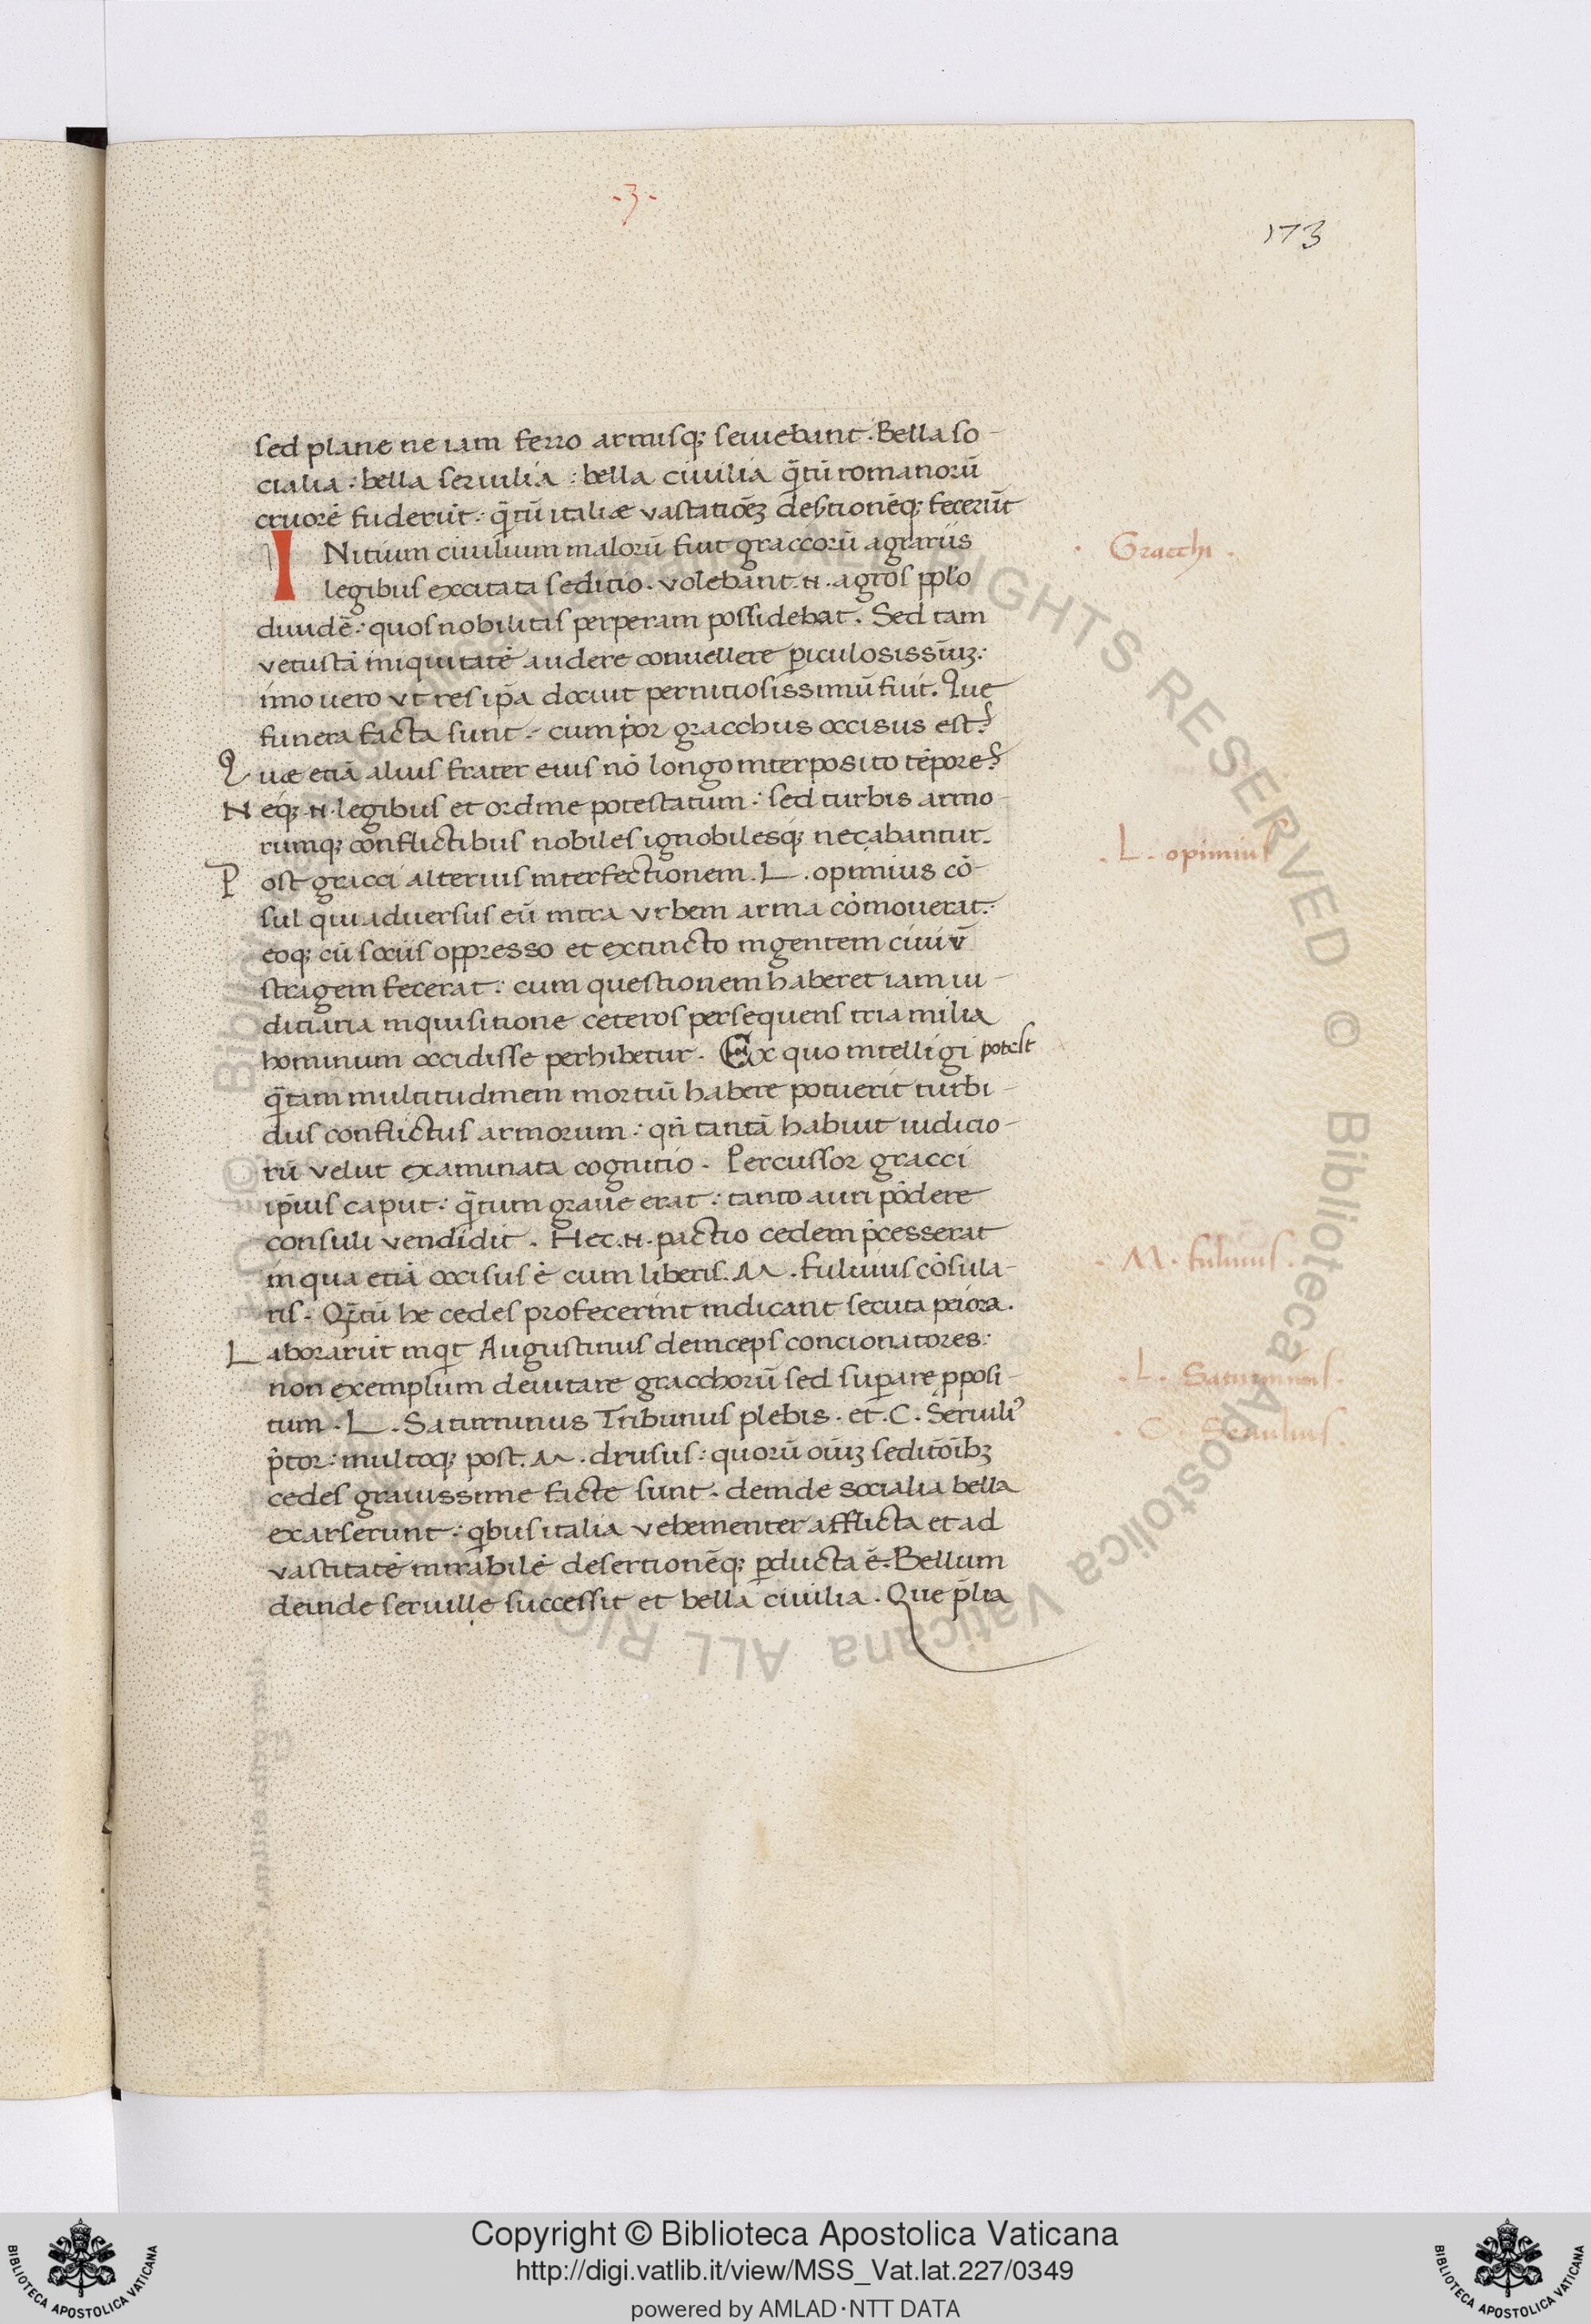 -3-
173
sed plane ne iam ferro armisq; seuiebant. Bella so-
cialia: bella seruilia: bella ciuilia q̄tū romanorū
cruorē fuderūt: q̄tū italiæ vastatiōēꝫ deſtionēq; fecerūt
INitium ciuilium malorū fuit graccorū agrariis
legibus excitata seditio. volebant .N. agros pplo
diuidē: quos nobilitas perperam possidebat. Sed tam
vetustā iniquitatē audere conuellere ꝑiculosissimūꝫ:
imo uero vt res ip̄a docuit pernitiosissimū fuit. Que
funera facta sunt: cum p̓or gracchus occisus est?
Quæ etiā alius frater eius nō longo interposito tēpore?
Neq; .N. legibus et ordine potestatum: sed turbis armo-
rumq; conflictibus nobiles ignobilesq; necabantur.
Post gracci alterius interfectionem. L. opimius cō-
sul qui aduersus eū intra vrbem arma cōmouerat:
eoq; cū sociis oppresso et extincto ingentem ciuiū
stragem fecerat: cum questionem haberet iam iu-
ditiaria inquisitione ceteros persequens tria milia
hominum occidisse perhibetur. Ex quo intelligi potest
q̄tam multitudinem mortiū habere potuerit turbi-
dus conflictus armorum: qn̄ tantā habuit iudicio-
rū velut examinata cognitio. Percussor gracci
ip̄ius caput: q̄tum graue erat: tanto auri pōdere
consuli vendidit. Hec .N. pactio cedem p̓cesserat
in qua etiā occisus ē cum liberis. M. fuluius cōsula-
ris. Q̄tū he cedes profecerint indicant secuta peiora.
Laborarūt inqt Augustinus deinceps concionatores:
non exemplum deuitare gracchorū sed suꝑare ꝓposi-
tum. L. Saturninus Tribunus plebis. et .C. Seruiliꝰ
p̄tor: multoq; post. M. drusus: quorū oīuꝫ seditōībꝫ
cedes grauissime facte sunt. deinde socialia bella
exarserunt: qbus italia vehementer afflicta et ad
vastitatē mirabilē desertionēq; ꝑducta ē. Bellum
deinde seruille successit et bella ciuilia. Que p̄lia
· Gracchi ·
· L. opimius
· M. fuluius ·
· L. Saturninus ·
· C. Seruilius ·
© Biblioteca Apostolica Vaticana ALL RIGHTS RESERVED
Copyright © Biblioteca Apostolica Vaticana
http://digi.vatlib.it/view/MSS_Vat.lat.227/0349
powered by AMLAD·NTT DATA
BIBLIOTECA APOSTOLICA VATICANA
BIBLIOTECA APOSTOLICA VATICANA